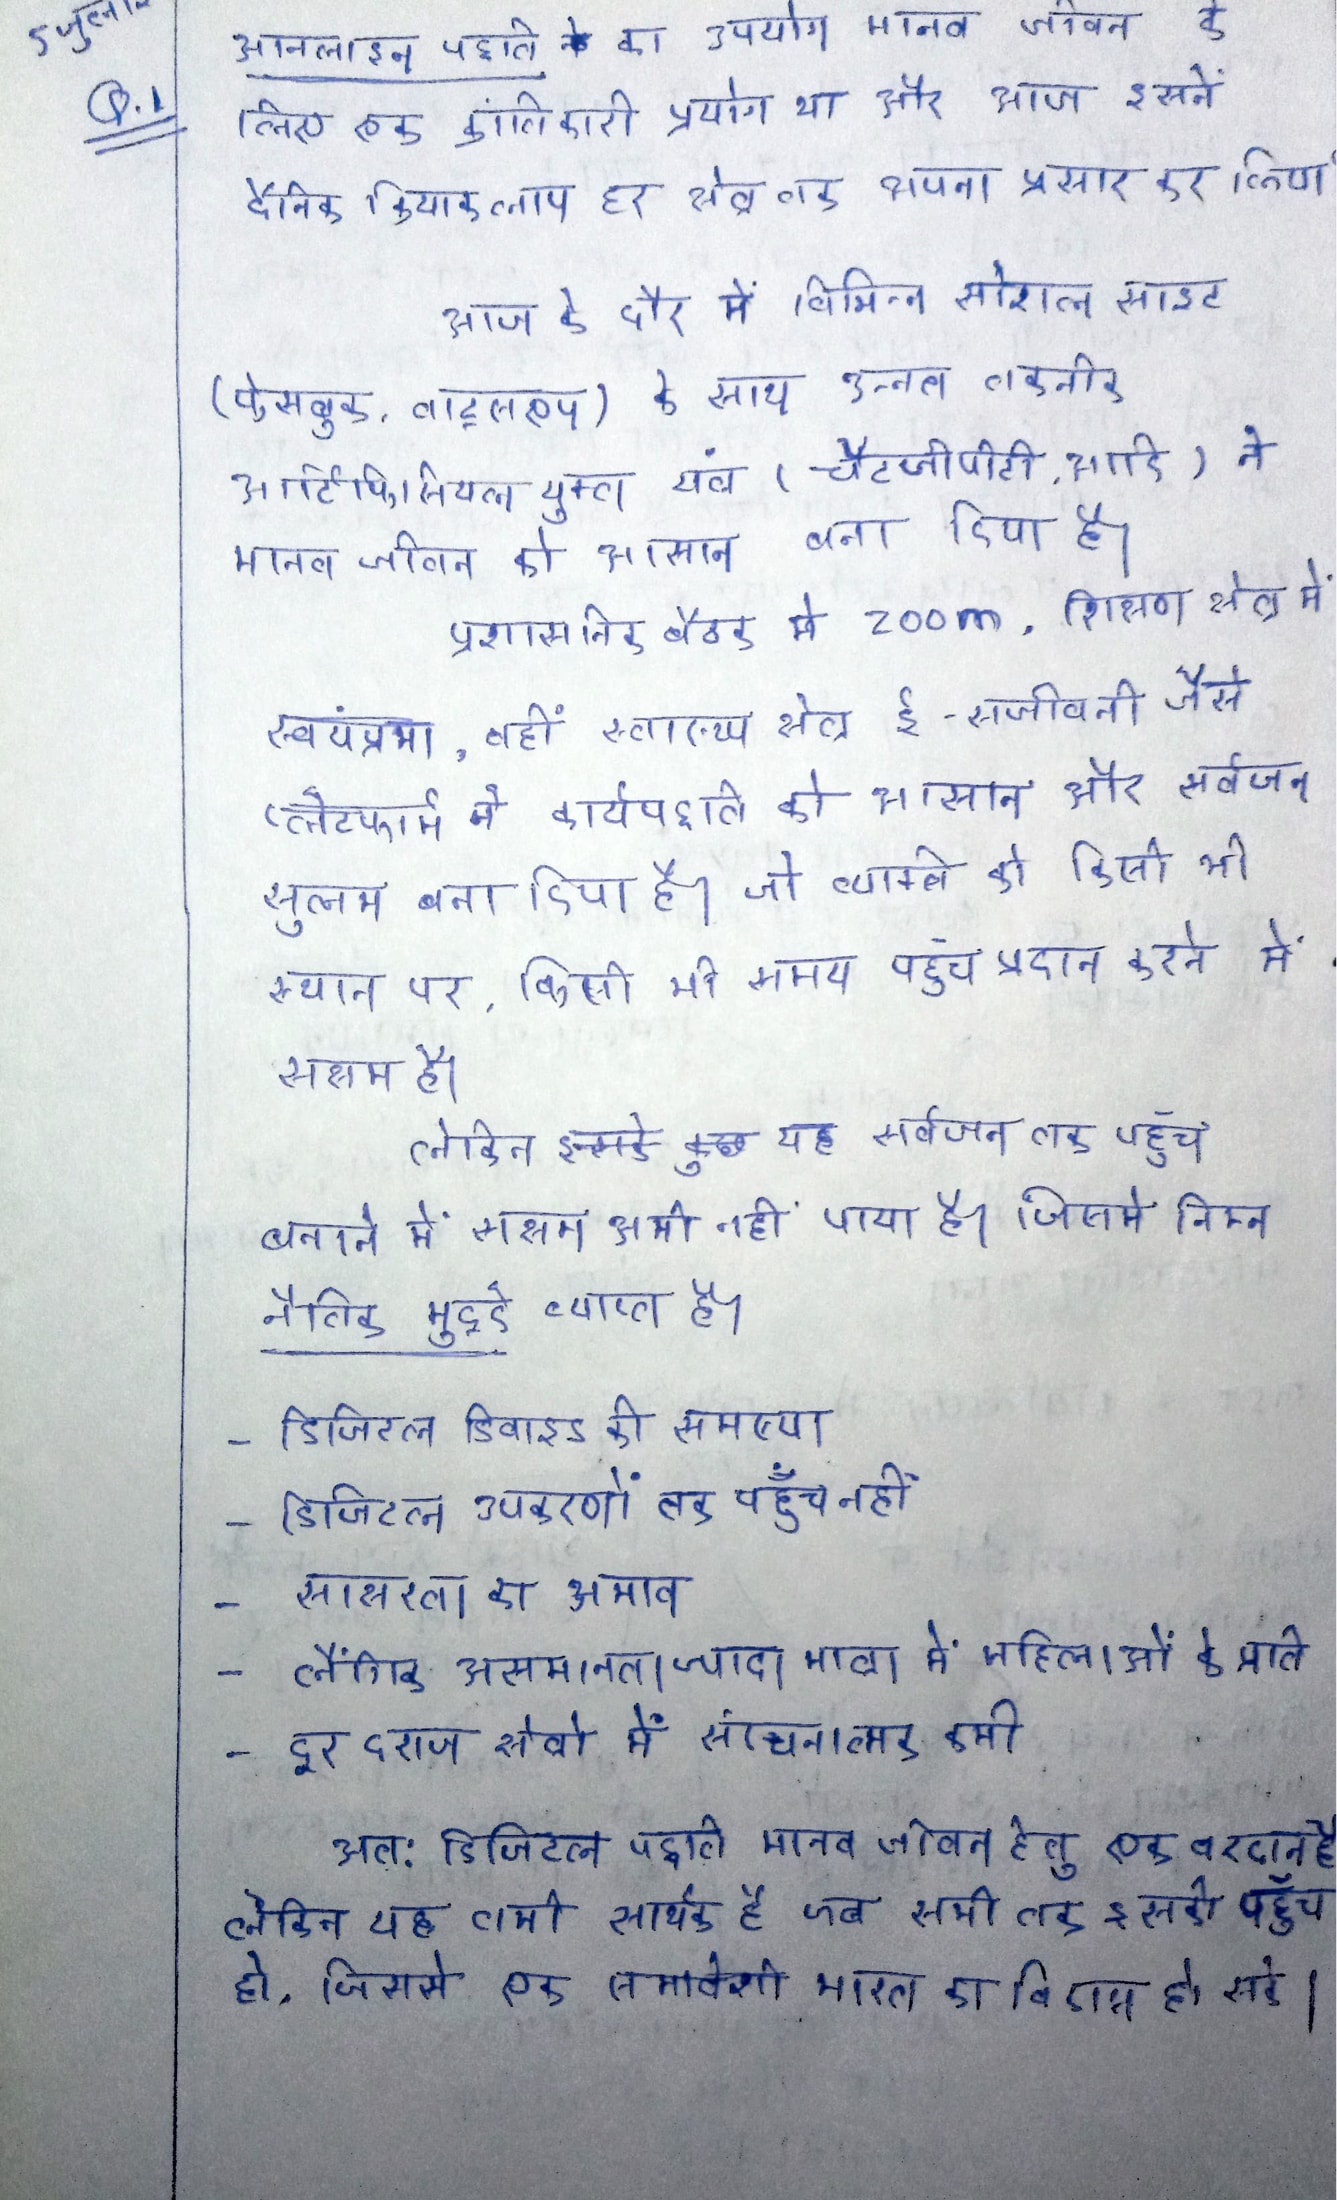 5 जुलाई
Q.1
आनलाइन पद्धति का उपयोग मानव जीवन के
लिए एक क्रांतिकारी प्रयोग था और आज इसने
दैनिक क्रियाकलाप हर क्षेत्र तक अपना प्रसार कर लिया
आज के दौर में विभिन्न सोशल साइट
(फेसबुक, वाट्सएप) के साथ उन्नत तकनीक
आर्टिफिसियल युक्त यंत्र (चैटजीपीटी, आदि) ने
मानव जीवन को आसान बना दिया है।
प्रशासनिक बैठक मे zoom, शिक्षण क्षेत्र में
स्वयंप्रभा, वहीं स्वास्थ्य क्षेत्र ई-सजीवनी जैसे
प्लेटफार्म ने कार्यपद्धति को आसान और सर्वजन
सुलभ बना दिया है। जो व्यक्ति को किसी भी
स्थान पर, किसी भी समय पहुंच प्रदान करने में
सक्षम है।
लेकिन इसके कुछ यह सर्वजन तक पहुँच
बनाने में सक्षम अभी नहीं पाया है। जिसमे निम्न
नैतिक मुद्दे व्याप्त है।
- डिजिटल डिवाइड की समस्या
- डिजिटल उपकरणों तक पहुँच नहीं
- साक्षरता का अभाव
- लैंगिक असमानता ज्यादा मात्रा में महिलाओं के प्रति
- दूर दराज क्षेत्रो में संरचनात्मक कमी
अत: डिजिटल पद्धति मानव जीवन हेतु एक वरदान है
लेकिन यह तभी सार्थक है जब सभी तक इसकी पहुँच
हो, जिससे एक समावेशी भारत का विकास हो सके।